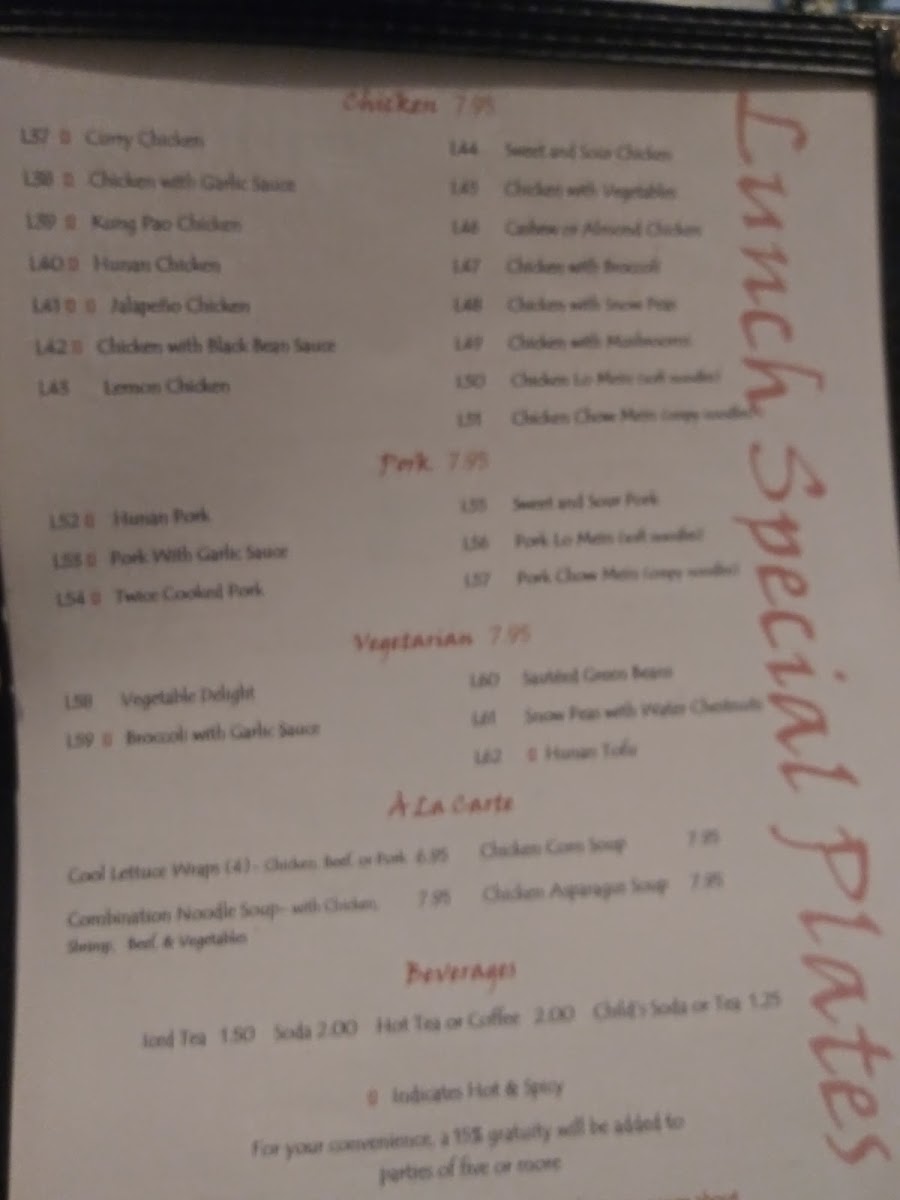 Lunch Special Plates
Chicken 7.95
L37 Curry Chicken
L38 Chicken with Garlic Sauce
L39 Kung Pao Chicken
L40 Hunan Chicken
L41 Jalapeño Chicken
L42 Chicken with Black Bean Sauce
L43 Lemon Chicken
L44 Sweet and Sour Chicken
L45 Chicken with Vegetables
L46 Cashew or Almond Chicken
L47 Chicken with Broccoli
L48 Chicken with Snow Peas
L49 Chicken with Mushrooms
L50 Chicken Lo Mein (soft noodles)
L51 Chicken Chow Mein (crispy noodles)
Pork 7.95
L52 Hunan Pork
L53 Pork With Garlic Sauce
L54 Twice Cooked Pork
L55 Sweet and Sour Pork
L56 Pork Lo Mein (soft noodles)
L57 Pork Chow Mein (crispy noodles)
Vegetarian 7.95
L58 Vegetable Delight
L59 Broccoli with Garlic Sauce
L60 Sautéed Green Beans
L61 Snow Peas with Water Chestnuts
L62 Hunan Tofu
À La Carte
Cool Lettuce Wraps (4) - Chicken, Beef, or Pork 6.95
Combination Noodle Soup- with Chicken, 7.95
Shrimp, Beef, & Vegetables
Chicken Corn Soup 7.95
Chicken Asparagus Soup 7.95
Beverages
Iced Tea 1.50 Soda 2.00 Hot Tea or Coffee 2.00 Child's Soda or Tea 1.25
Indicates Hot & Spicy
For your convenience, a 15% gratuity will be added to
parties of five or more